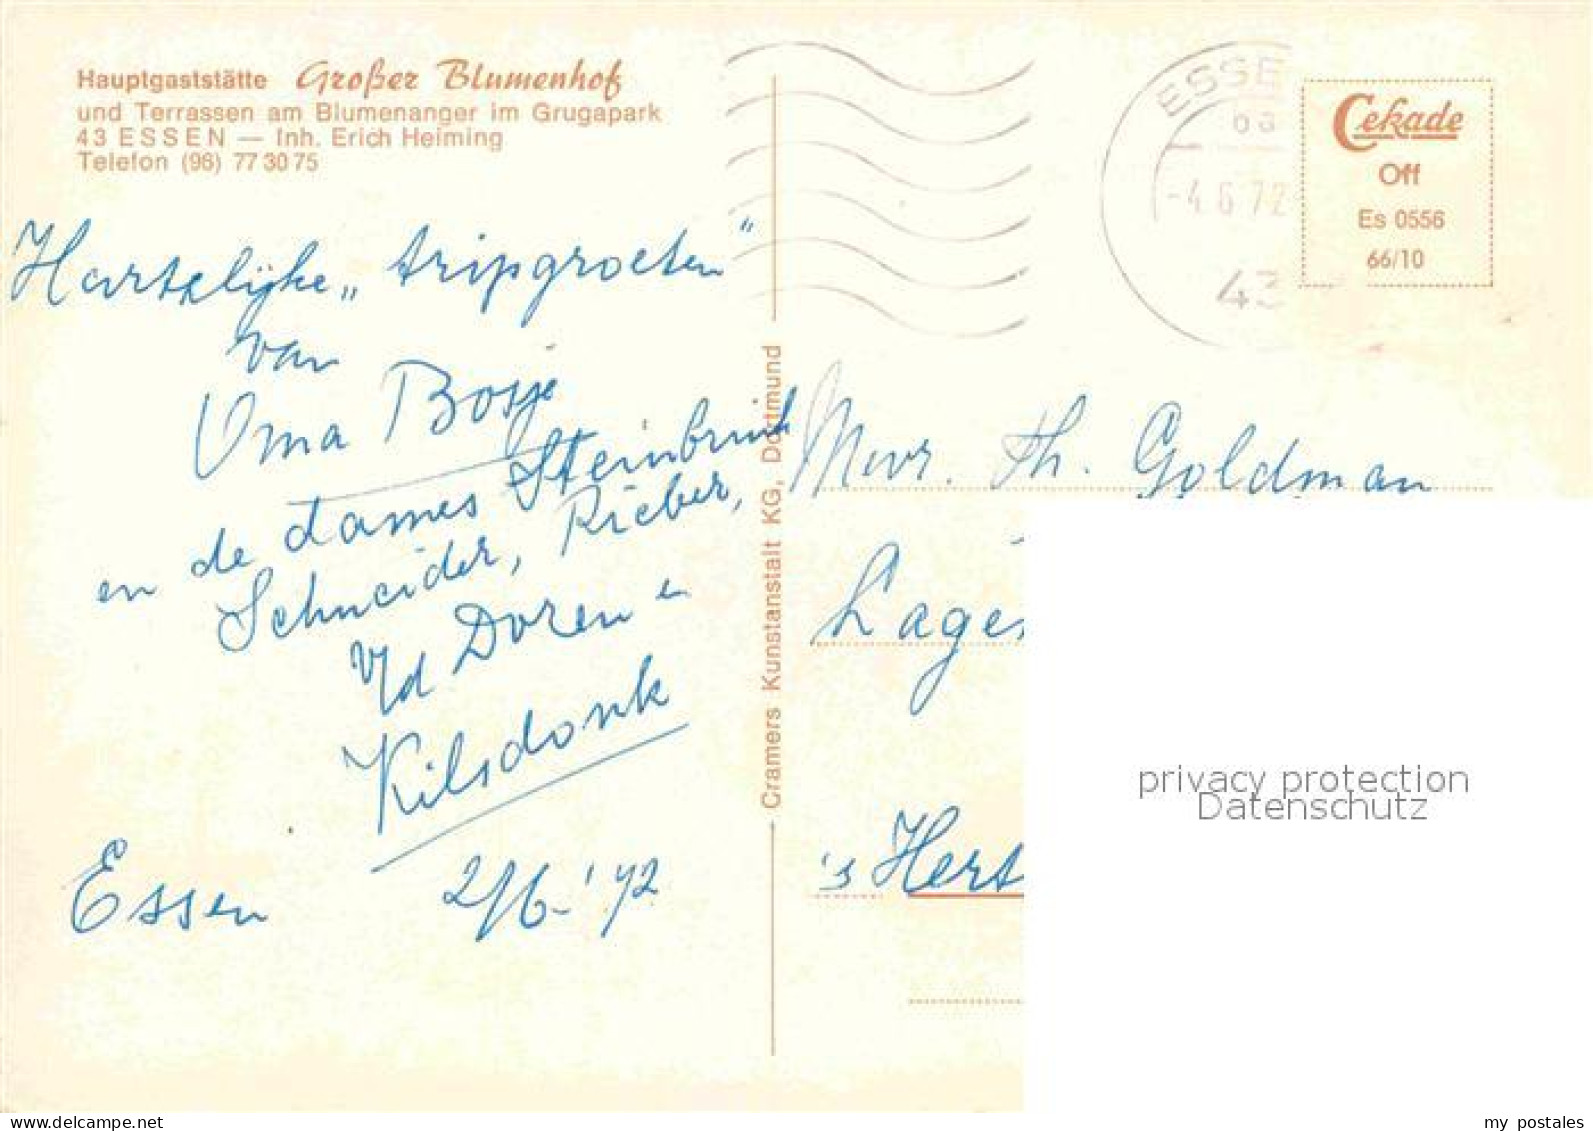 Hauptgaststätte Großer Blumenhof
und Terrassen am Blumenanger im Grugapark
43 ESSEN — Inh. Erich Heiming
Telefon (96) 77 30 75
Hartelijke „tripgroeten"
van
Oma Bosje
en de dames Steinbrink
Schneider, Rieber,
v/d Doren en
Kilsdonk
Essen 2/6-'72
Cramers Kunstanstalt KG, Dortmund
ESSE
-4.6.72
43
Cekade
Off
Es 0556
66/10
Mevr. Th. Goldman
Lage
's Hert
privacy protection
Datenschutz
www.ansichtskartenversand.com
my_postales